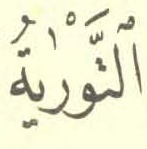 ٱلتَّوْرٰيةُ